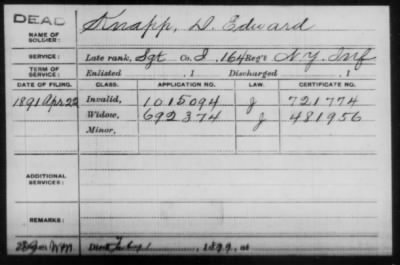 DEAD
NAME OF SOLDIER: Knapp, D. Edward
SERVICE: Late rank, Sgt Co. I, 164 Reg't N.Y. Inf
TERM OF SERVICE: Enlisted , 1 Discharged , 1
DATE OF FILING. CLASS. APPLICATION NO. LAW. CERTIFICATE NO.
1891 Apr. 22 Invalid, 1015094 J 721774
Widow, 692374 J 481956
Minor,
ADDITIONAL SERVICES:
REMARKS:
Died 1899, at